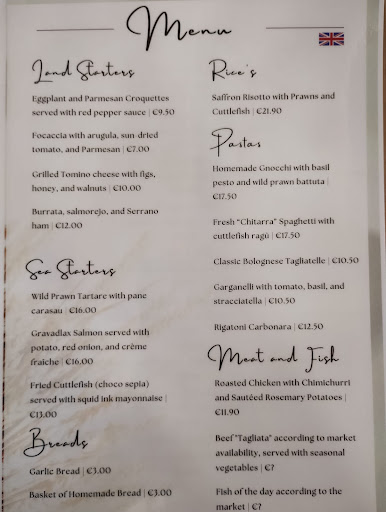 Menu
Land Starters
Eggplant and Parmesan Croquettes
served with red pepper sauce | €9.50
Focaccia with arugula, sun-dried
tomato, and Parmesan | €7.00
Grilled Tomino cheese with figs,
honey, and walnuts | €10.00
Burrata, salmorejo, and Serrano
ham | €12.00
Sea Starters
Wild Prawn Tartare with pane
carasau | €16.00
Gravadlax Salmon served with
potato, red onion, and crème
fraîche | €16.00
Fried Cuttlefish (choco sepia)
served with squid ink mayonnaise |
€13.00
Breads
Garlic Bread | €3.00
Basket of Homemade Bread | €3.00
Rice's
Saffron Risotto with Prawns and
Cuttlefish | €21.90
Pastas
Homemade Gnocchi with basil
pesto and wild prawn battuta |
€17.50
Fresh "Chitarra" Spaghetti with
cuttlefish ragù | €17.50
Classic Bolognese Tagliatelle | €10.50
Garganelli with tomato, basil, and
stracciatella | €10.50
Rigatoni Carbonara | €12.50
Meat and Fish
Roasted Chicken with Chimichurri
and Sautéed Rosemary Potatoes |
€11.90
Beef "Tagliata" according to market
availability, served with seasonal
vegetables | €?
Fish of the day according to the
market | €?